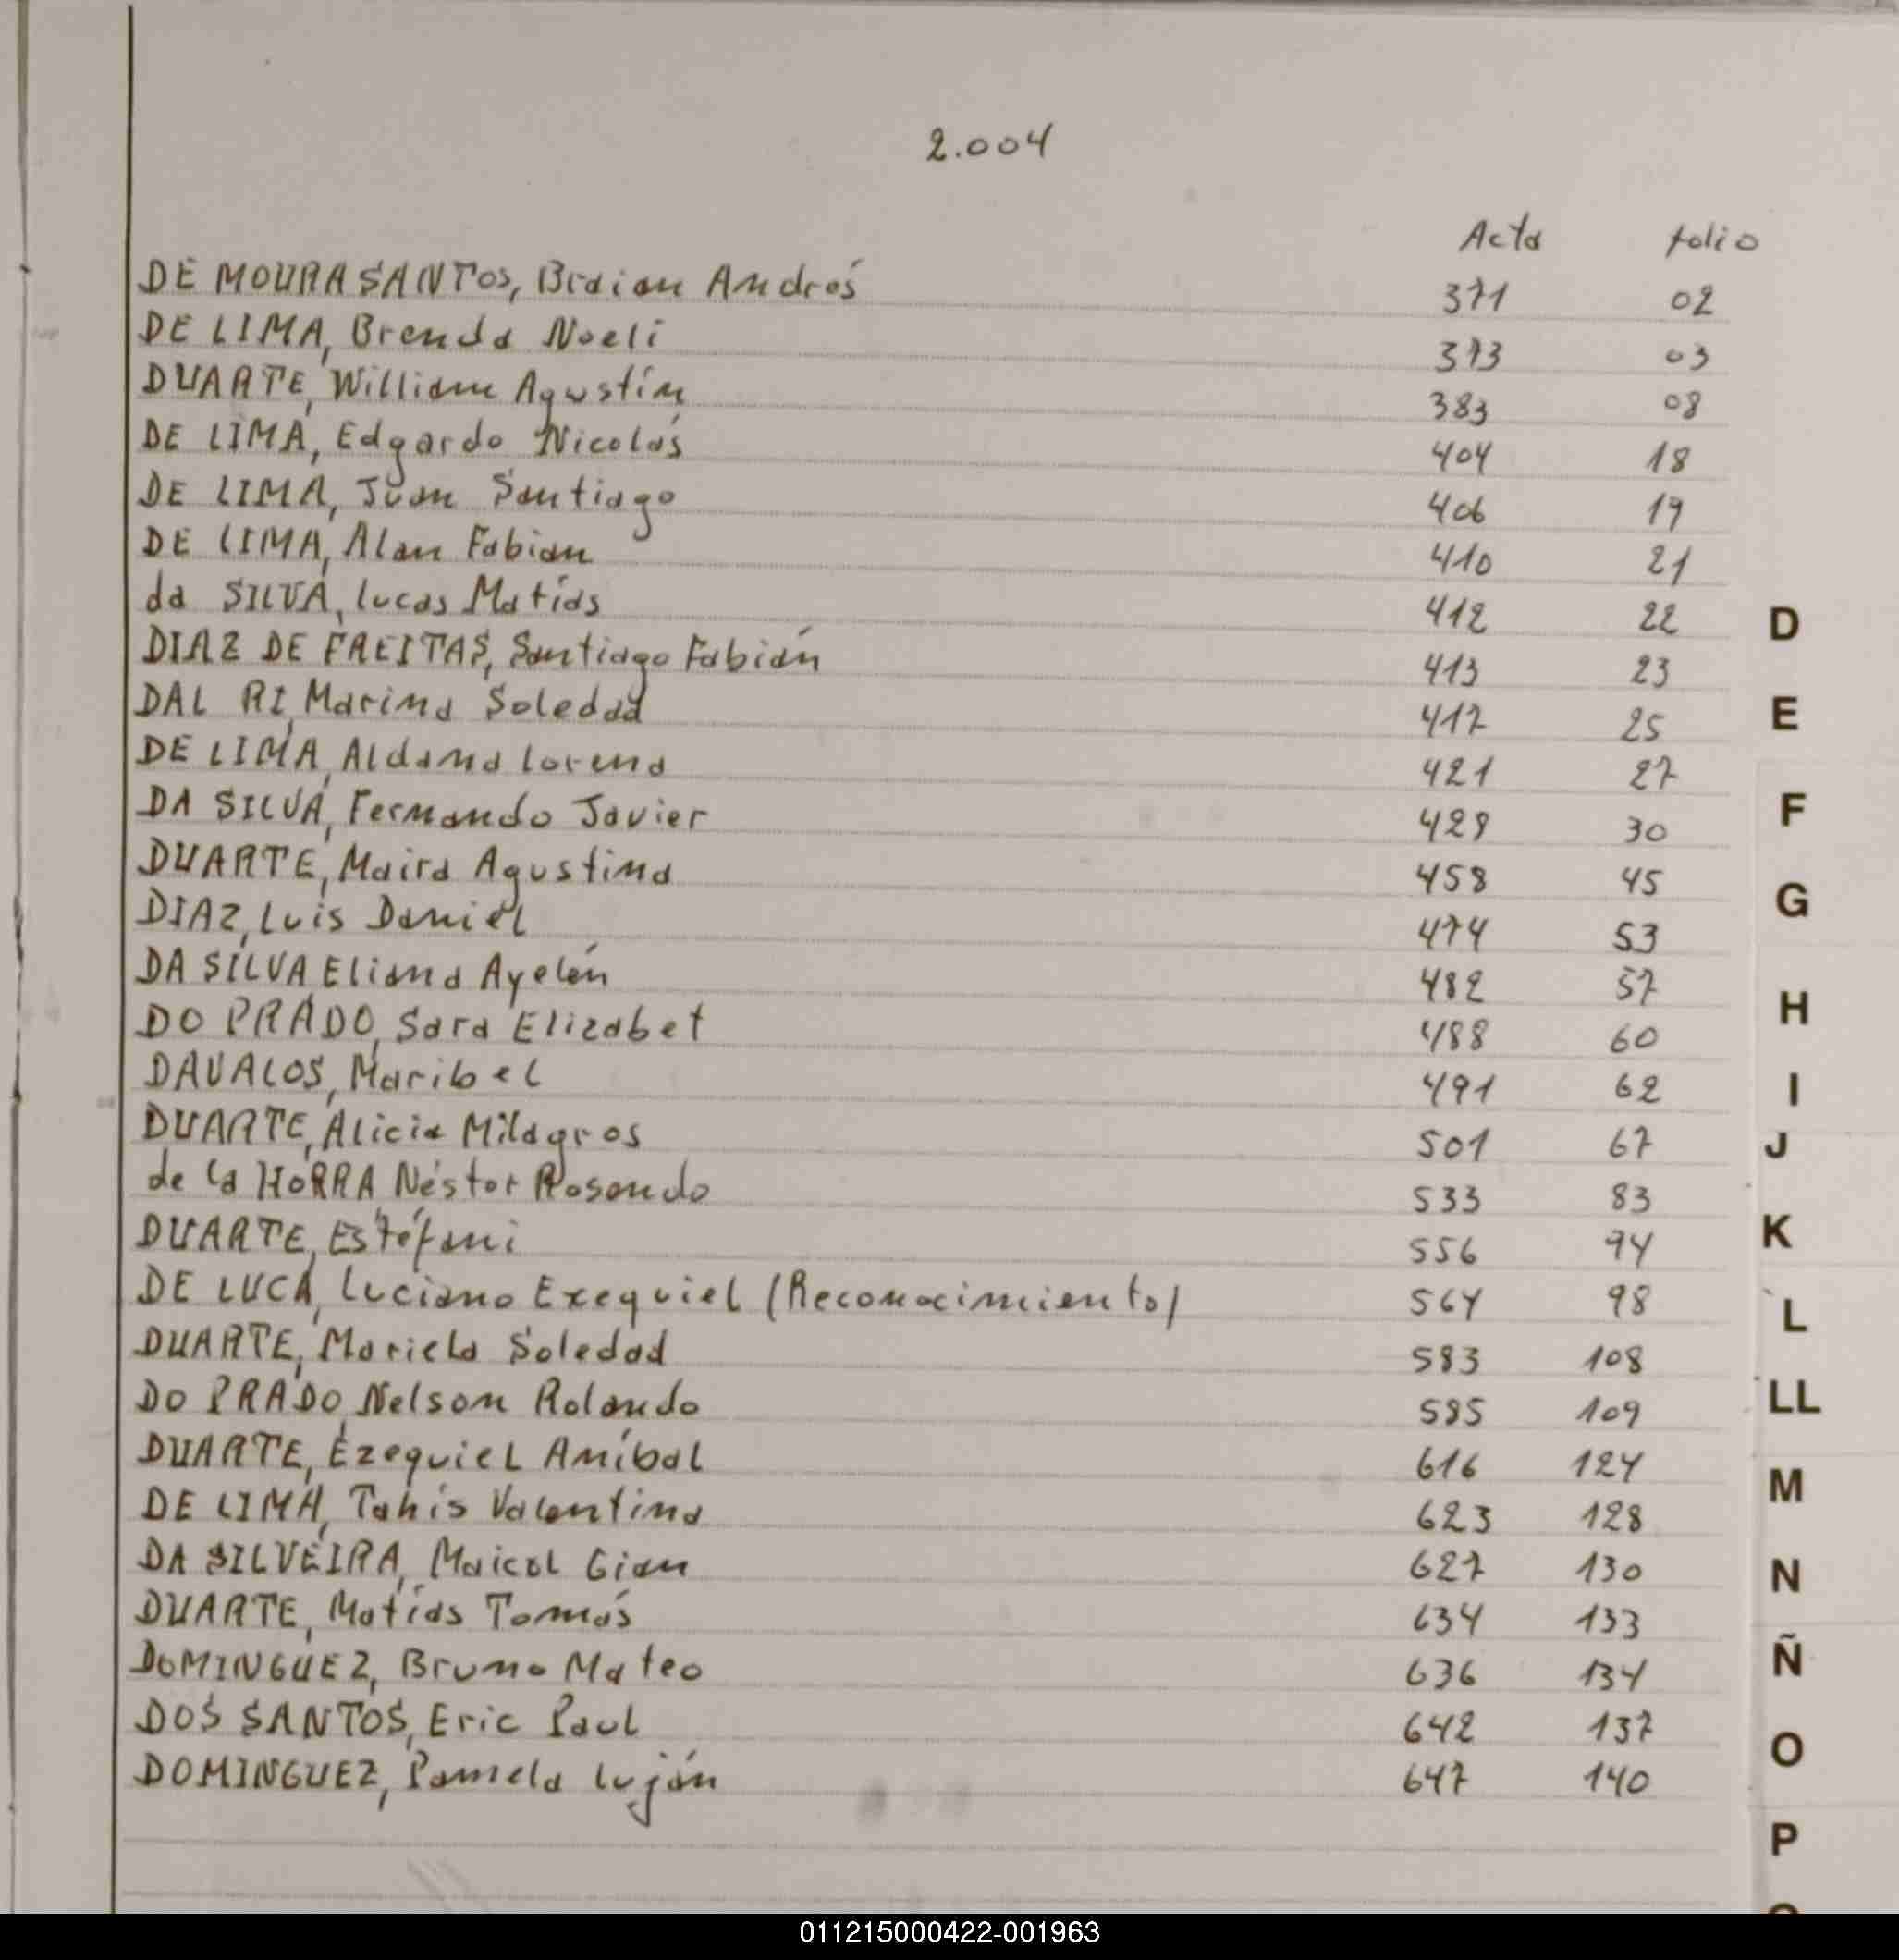 2.004
Acta folio
DE MOURA SANTOS, Braian Andrés 371 02
DE LIMA, Brenda Noeli 373 03
DUARTE, William Agustín 383 08
DE LIMA, Edgardo Nicolás 404 18
DE LIMA, Juan Santiago 406 19
DE LIMA, Alan Fabian 410 21
da SILVA, Lucas Matías 412 22
DIAZ DE FREITAS, Santiago Fabián 413 23
DAL RI, Marina Soledad 417 25
DE LIMA, Aldana Lorena 421 27
DA SILVA, Fernando Javier 428 30
DUARTE, Maira Agustina 458 45
DIAZ, Luis Daniel 474 53
DA SILVA Eliana Ayelén 482 57
DO PRADO, Sara Elizabet 488 60
DAVALOS, Maribel 491 62
DUARTE, Alicia Milagros 501 67
de la HORRA Néstor Rosendo 533 83
DUARTE, Estéfani 556 94
DE LUCA, Luciano Exequiel (Reconocimiento) 564 98
DUARTE, Mariela Soledad 583 108
DO PRADO, Nelson Rolando 585 109
DUARTE, Ezequiel Aníbal 616 124
DE LIMA, Tahis Valentina 623 128
DA SILVEIRA, Maicol Gian 627 130
DUARTE, Matías Tomás 634 133
DOMINGUEZ, Bruno Mateo 636 134
DOS SANTOS, Eric Paul 642 137
DOMINGUEZ, Pamela Luján 647 140
D
E
F
G
H
I
J
K
L
LL
M
N
Ñ
O
P
011215000422-001963